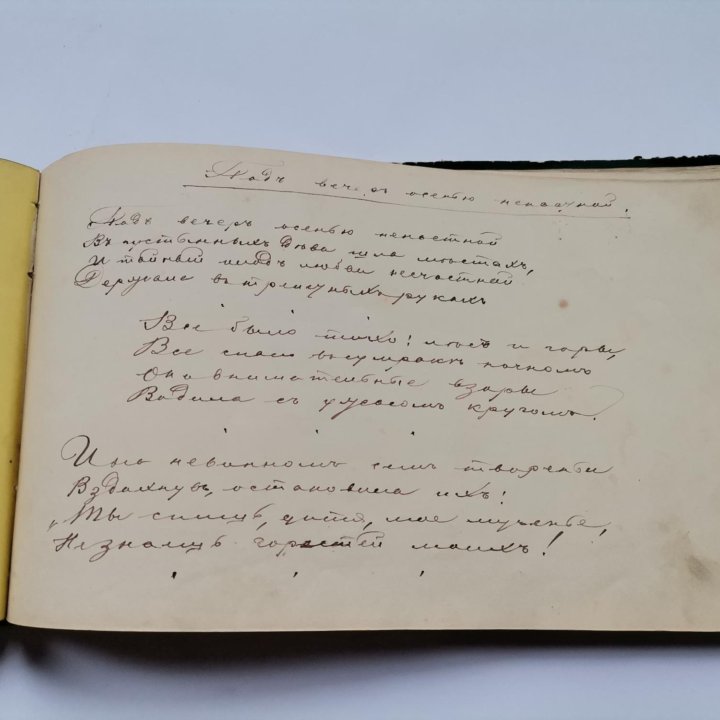 Подъ вечеръ осенью ненастной.
Подъ вечеръ осенью ненастной
Въ пустынныхъ Дѣва шла мѣстахъ,
И тайный плодъ любви несчастной
Держала въ трепетныхъ рукахъ
Все было тихо! лѣсъ и горы,
Все спало въ сумракѣ ночномъ
Она внимательные взоры
Водила съ ужасомъ кругомъ.
И на невинномъ семъ твореньи
Вздохнувъ, остановила ихъ!
„Ты спишь, дитя, мое мученье,
Не знаешь горестей моихъ!